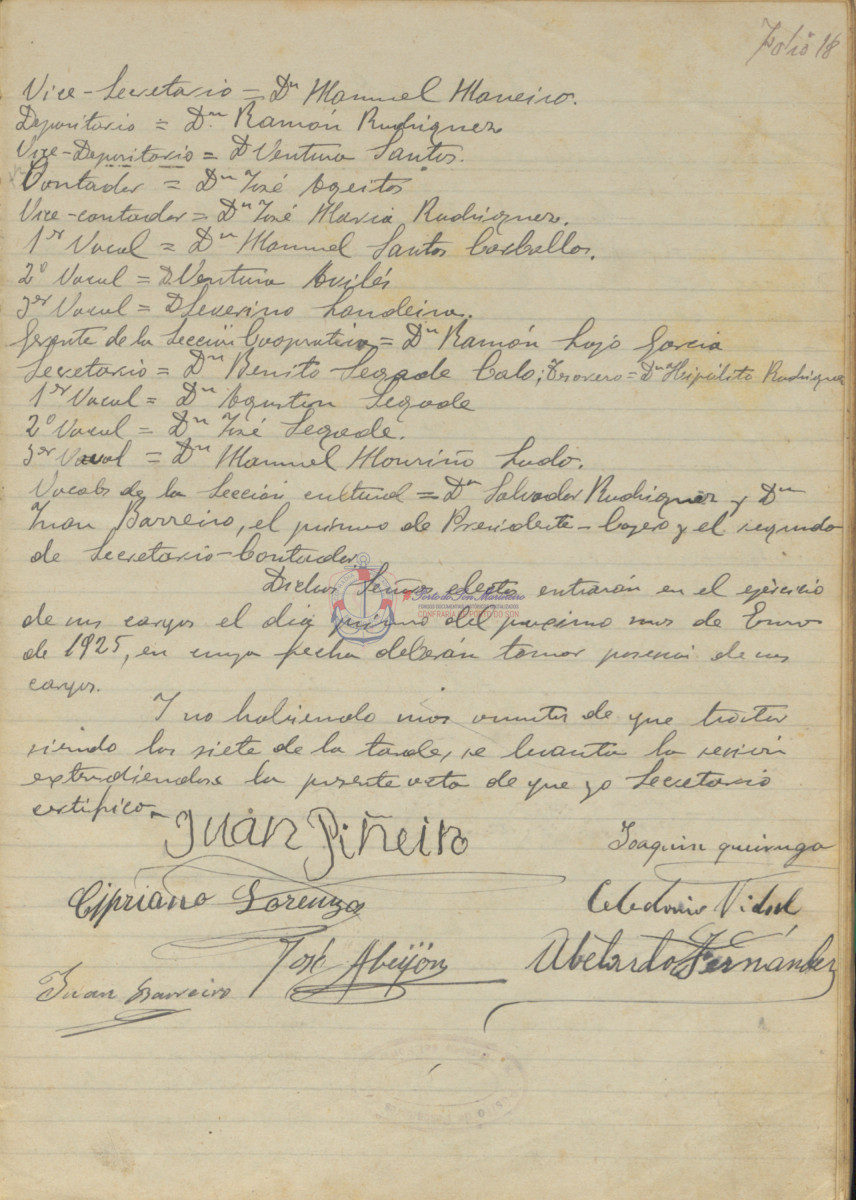 Folio 18
Vice-Secretario = Dn Manuel Maneiro.
Depositario = Dn Ramón Rodriguez
Vice-Depositario = D Ventura Santos.
Contador = Dn José Ageitos
Vice-contador = Dn José Maria Rodriguez.
1er Vocal = Dn Manuel Santos Carballos.
2º Vocal = D Ventura Avilés
3er Vocal = D Severino Landeira.
Gerente de la Sección Cooprativa = Dn Ramón Lojo Garcia
Secretario = Dn Benito Segade Calo; Tesorero = Dn Hipólito Rodriguez
1er Vocal = Dn Agustin Segade
2º Vocal = Dn José Segade.
3er Vocal = Dn Manuel Mouriño Ludo.
Vocales de la Sección cultural = Dn Salvador Rodriguez y Dn
Juan Barreiro, el primero de Presidente-Cajero y el segundo
de Secretario-Contador.
Dichos Señores electos entrarán en el ejercicio
Porto do Son Mariñeiro
CONFRARÍA DE PORTO DO SON
de sus cargos el dia primero del proximo mes de Enero
de 1925, en cuya fecha deberán tomar posesión de sus
cargos.
Y no habiendo mas asuntos de que tratar
siendo las siete de la tarde, se levanta la sesión
extendiendose la presente acta de que yo Secretario
certifico.
Juan Piñeiro
Joaquin queiruga
Cipriano Lorenzo
Celedonio Vidal
José Abeijón
Abelardo Fernández
Juan Barreiro